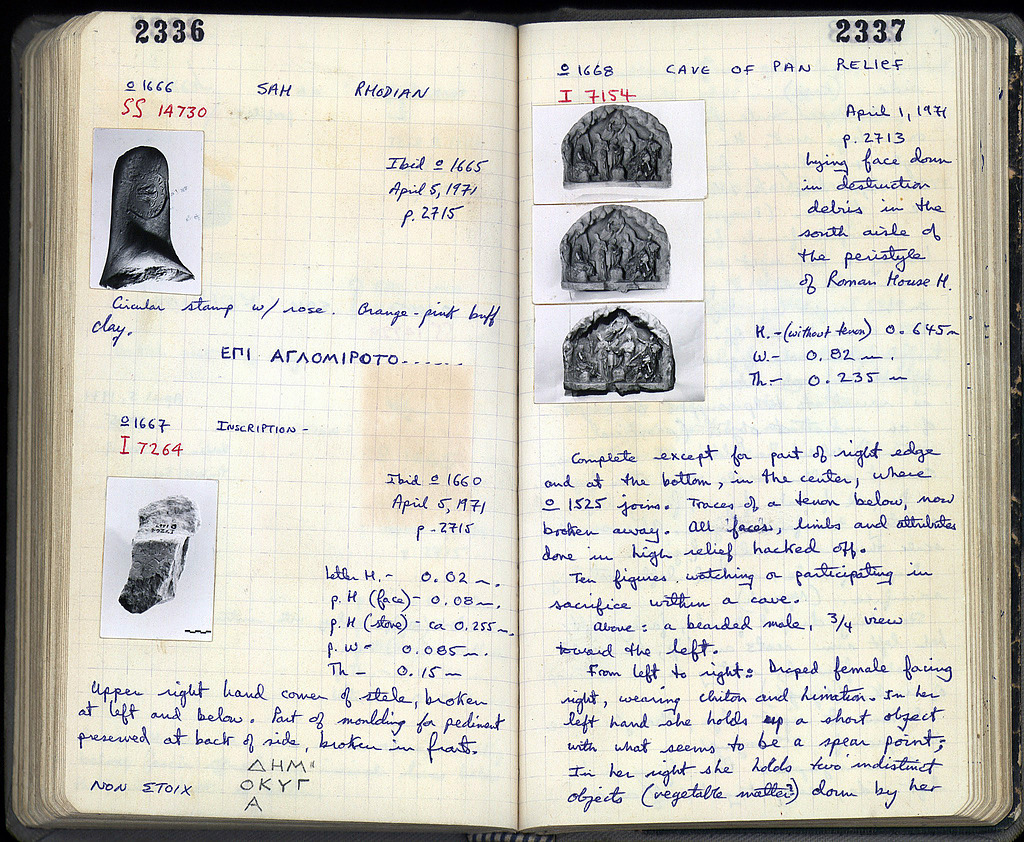 2336
o 1666 SAH RHODIAN
SS 14730
Ibid o 1665
April 5, 1971
p. 2715
Circular stamp w/ rose. Orange-pink buff
clay.
ΕΠΙ ΑΓΛΟΜΙΡΟΤΟ......
o 1667 INSCRIPTION -
I 7264
Ibid o 1660
April 5, 1971
p. 2715
letter H. - 0.02 m.
p. H (face) - 0.08 m.
p. H (stone) - ca 0.255 m.
p. W - 0.085 m.
Th - 0.15 m
Upper right hand corner of stele, broken
at left and below. Part of moulding for pediment
preserved at back of side, broken in front.
ΔΗΜ
ΟΚΥΓ
Α
NON ΣΤΟΙΧ
2337
o 1668 CAVE OF PAN RELIEF
I 7154
April 1, 1971
p. 2713
Lying face down
in destruction
debris in the
south aisle of
the peristyle
of Roman House H.
H. - (without tenon) 0.645 m
W. - 0.82 m.
Th. - 0.235 m
Complete except for part of right edge
and at the bottom, in the center, where
o 1525 joins. Traces of a tenon below, now
broken away. All faces, limbs and attributes
done in high relief hacked off.
Ten figures watching or participating in
sacrifice within a cave.
Above: a bearded male, 3/4 view
toward the left.
From left to right: Draped female facing
right, wearing chiton and himation. In her
left hand she holds up a short object
with what seems to be a spear point;
In her right she holds two indistinct
objects (vegetable matter?) down by her